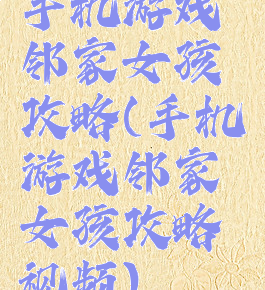 手机游戏
邻家女孩
攻略(手机
游戏邻家
女孩攻略
视频)